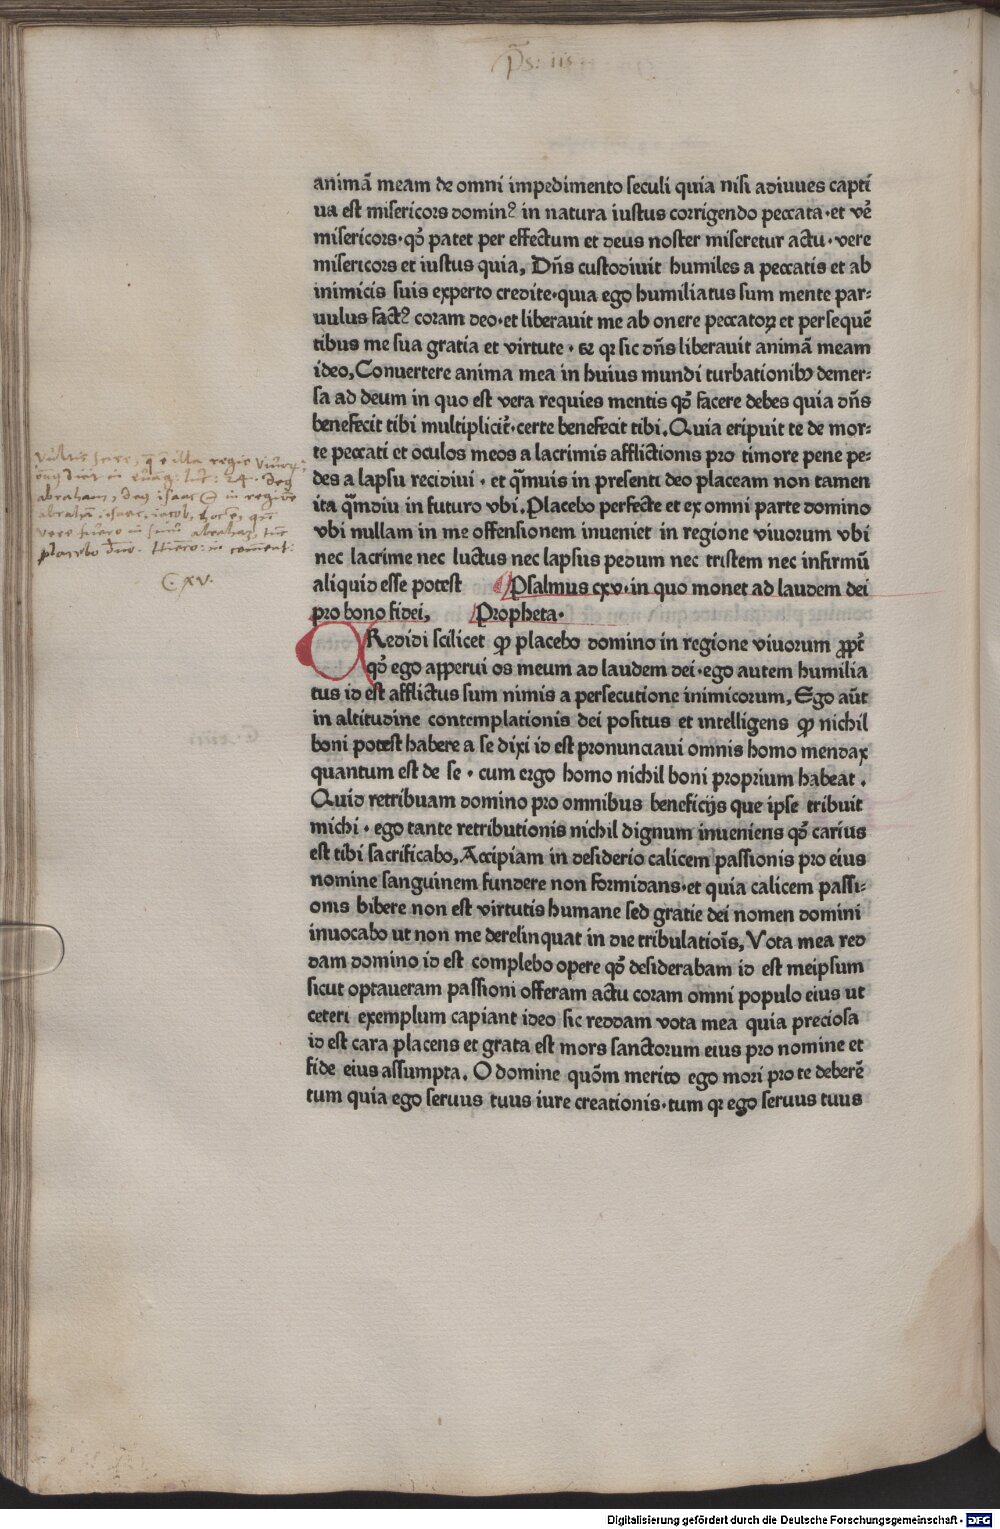 animā meam de omni impedimento seculi quia nisi adiuues capti
ua est misericors dominꝰ in natura iustus corrigendo peccata·et vē
misericors·qđ patet per effectum et deus noster miseretur actu·vere
misericors et iustus quia, Dn̄s custodiuit humiles a peccatis et ab
inimicis suis experto credite·quia ego humiliatus sum mente par⸗
uulus factꝰ coram deo·et liberauit me ab onere peccatoꝝ et persequē
tibus me sua gratia et virtute· et qꝛ sic dn̄s liberauit animā meam
ideo, Conuertere anima mea in huius mundi turbationibꝫ demer⸗
sa ad deum in quo est vera requies mentis qđ facere debes quia dn̄s
benefecit tibi multipliciť·certe benefecit tibi. Quia eripuit te de mor⸗
te peccati et oculos meos a lacrimis afflictionis pro timore pene pe⸗
des a lapsu recidiui · et qͣmuis in presenti deo placeam non tamen
ita qͣmdiu in futuro vbi. Placebo perfecte et ex omni parte domino
vbi nullam in me offensionem inueniet in regione viuorum vbi
nec lacrime nec luctus nec lapsus pedum nec tristem nec infirmū
aliquid esse potest Psalmus cxv·in quo monet ad laudem dei
pro bono fidei, Propheta·
CRedidi scilicet ꝙ placebo domino in regione viuorum ꝓpť
qđ ego apperui os meum ad laudem dei·ego autem humilia
tus id est afflictus sum nimis a persecutione inimicorum, Ego aūt
in altitudine contemplationis dei positus et intelligens ꝙ nichil
boni potest habere a se dixi id est pronunciaui omnis homo mendax
quantum est de se · cum ergo homo nichil boni proprium habeat .
Quid retribuam domino pro omnibus beneficijs que ipse tribuit
michi · ego tante retributionis nichil dignum inueniens qđ carius
est tibi sacrificabo, Accipiam in desiderio calicem passionis pro eius
nomine sanguinem fundere non formidans·et quia calicem passi⸗
onis bibere non est virtutis humane sed gratie dei nomen domini
inuocabo ut non me derelinquat in die tribulatiōis, Vota mea red
dam domino id est complebo opere qđ desiderabam id est meipsum
sicut optaueram passioni offeram actu coram omni populo eius ut
ceteri exemplum capiant ideo sic reddam vota mea quia preciosa
id est cara placens et grata est mors sanctorum eius pro nomine et
fide eius assumpta. O domine quōm merito ego mori pro te deberē
tum quia ego seruus tuus iure creationis·tum qꝛ ego seruus tuus
abraham, deꝰ isaac in regiōe
abrahā, isaac, iacob,
abrahaȝ, tūc
placebo dn̄o.
C.XV.
Digitalisierung gefördert durch die Deutsche Forschungsgemeinschaft - DFG